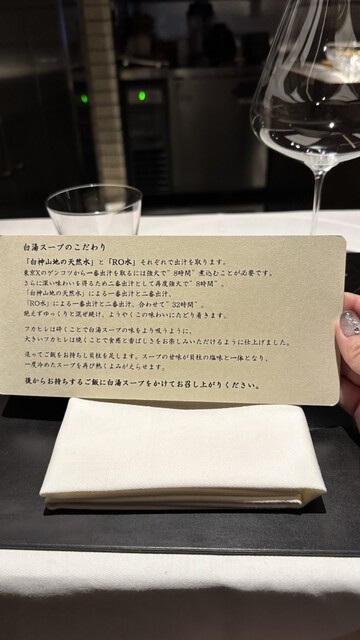 白湯スープのこだわり
「白神山地の天然水」と「RO水」それぞれで出汁を取ります。
東京Xのゲンコツから一番出汁を取るには強火で”8時間”煮込むことが必要です。
さらに深い味わいを得るため二番出汁として再度強火で”8時間”。
「白神山地の天然水」による一番出汁と二番出汁。
「RO水」による一番出汁と二番出汁。合わせて”32時間”。
絶えずゆっくりと混ぜ続け、ようやくこの味わいにたどり着きます。
フカヒレは砕くことで白湯スープの味をより吸うように、
大きいフカヒレは焼くことで食感と香ばしさをお楽しみいただけるように仕上げました。
追ってご飯をお持ちし貝柱を足します。スープの甘味が貝柱の塩味と一体となり、
一度冷めたスープを再び熱くよみがえらせます。
後からお持ちするご飯に白湯スープをかけてお召し上がりください。